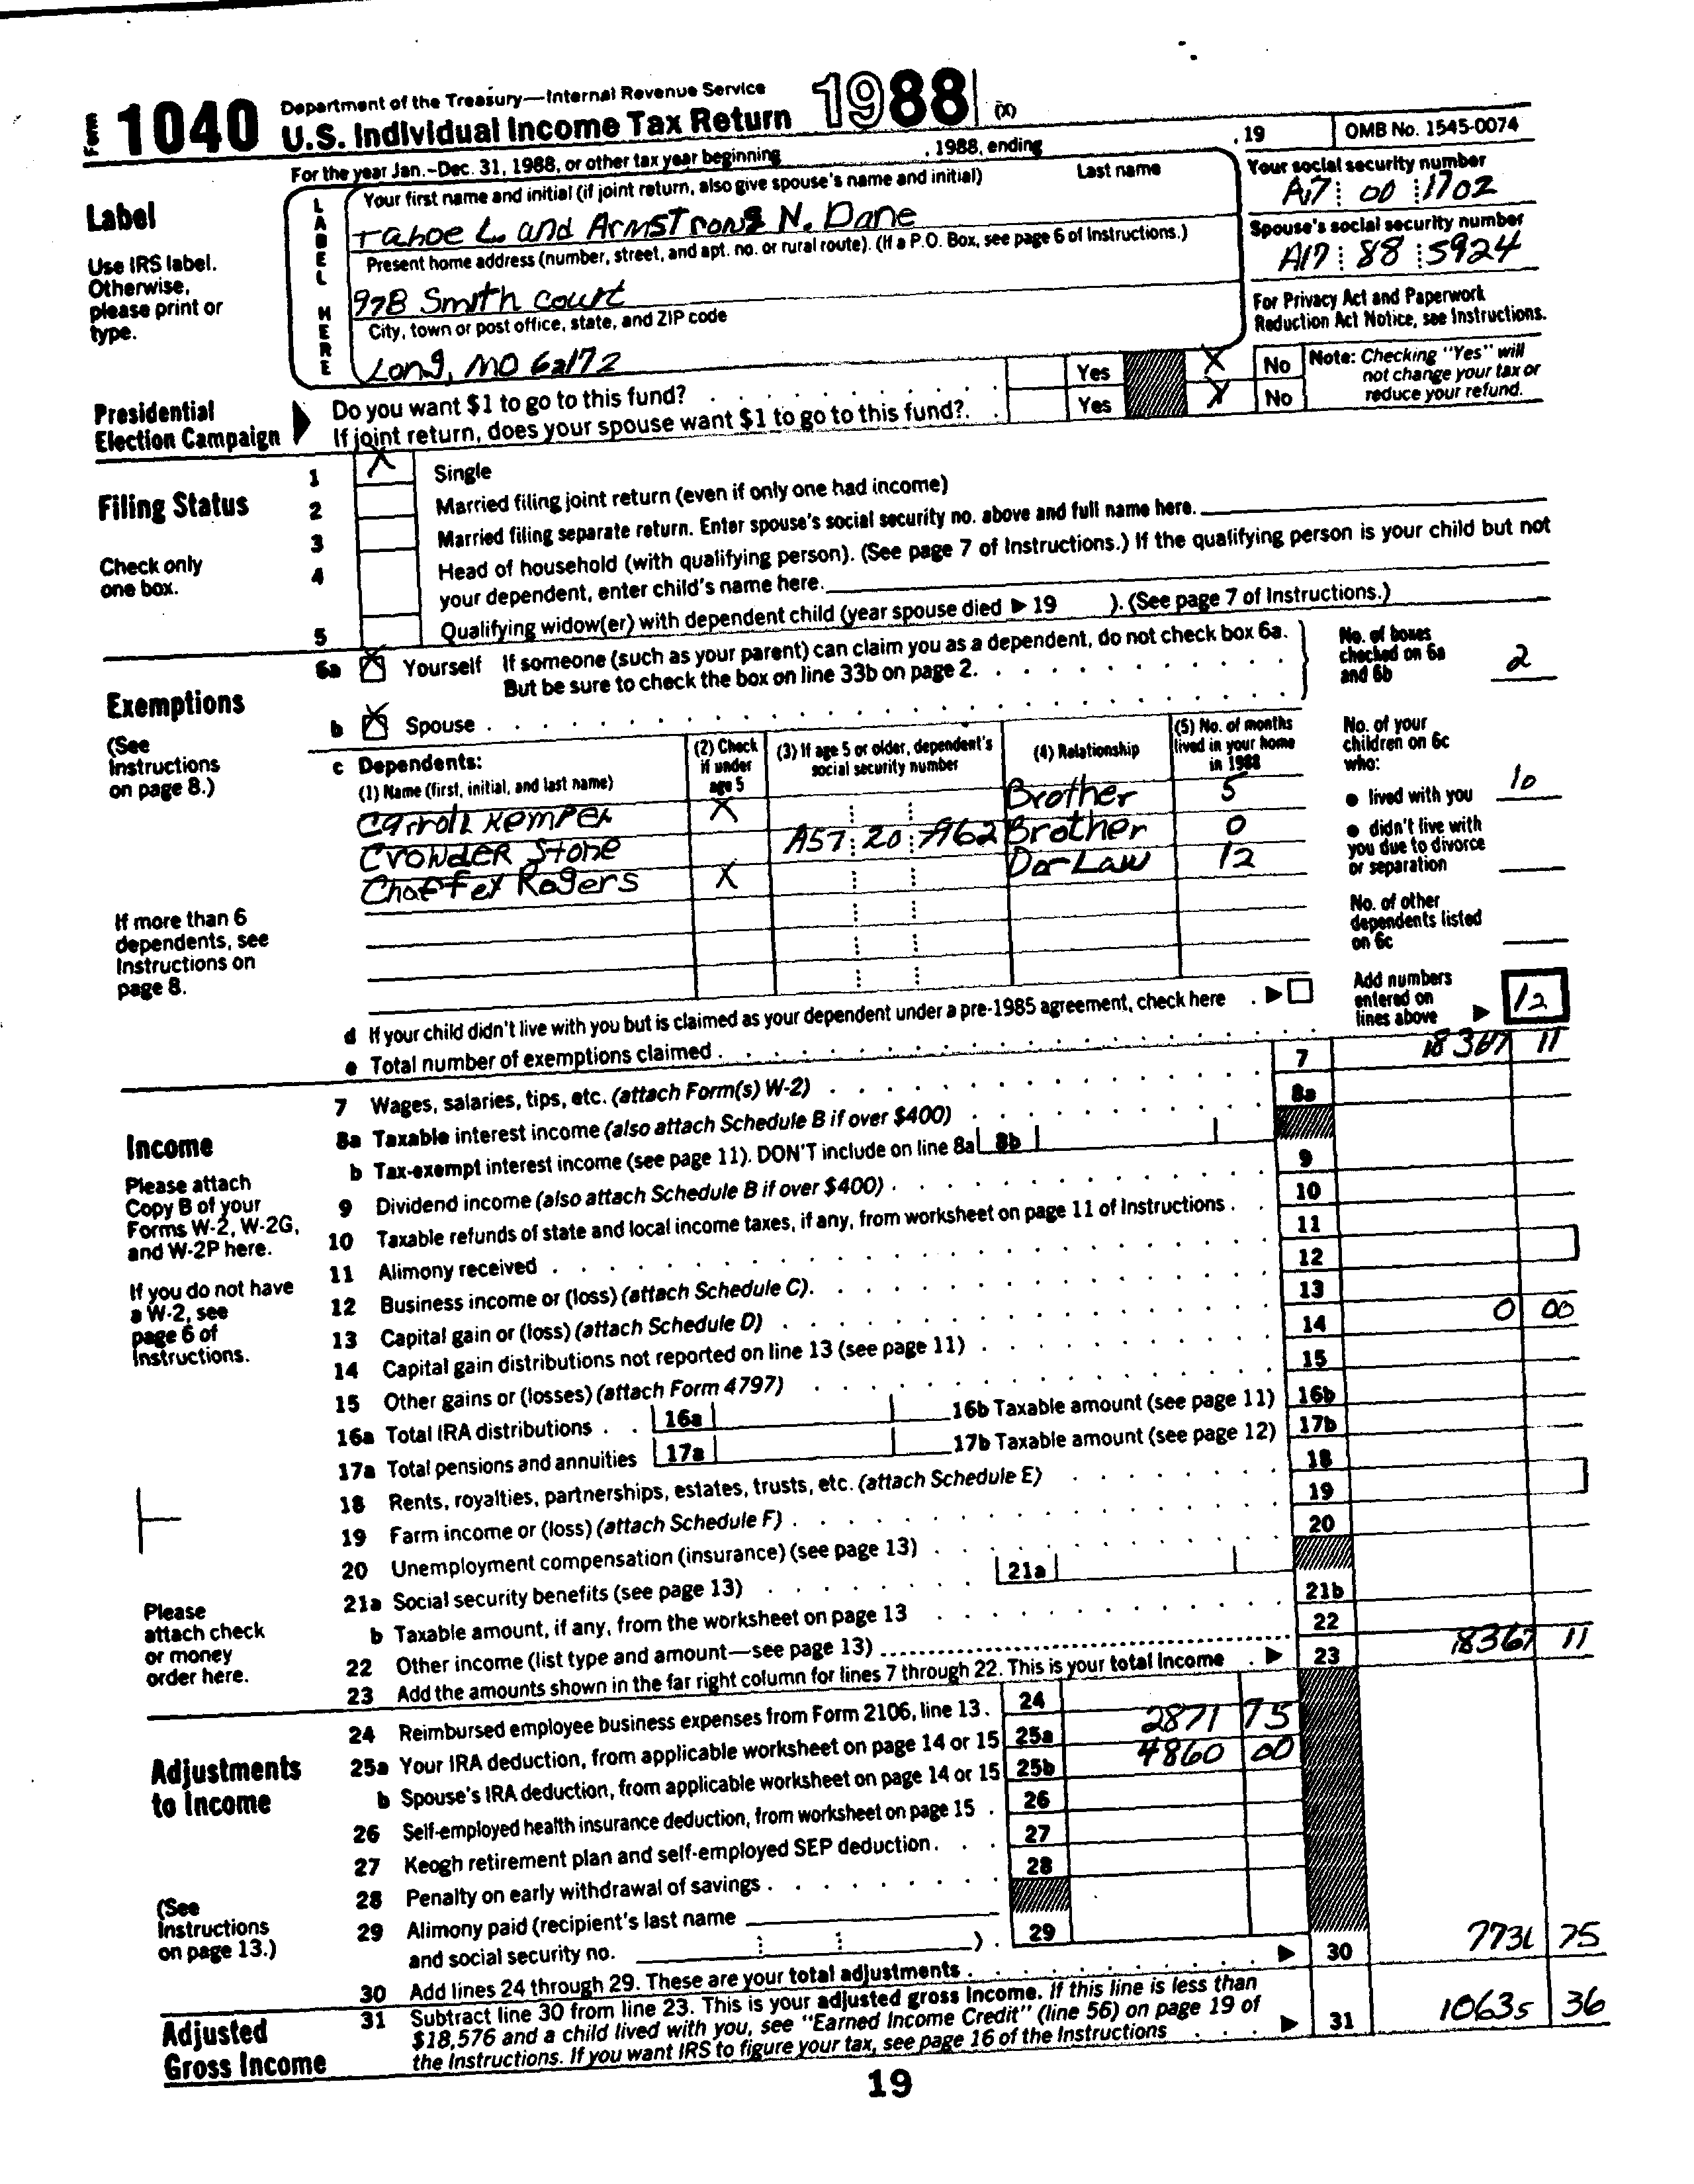 Form 1040 Department of the Treasury—Internal Revenue Service
U.S. Individual Income Tax Return 1988 (X)
For the year Jan.–Dec. 31, 1988, or other tax year beginning , 1988, ending , 19 OMB No. 1545-0074
Label
Use IRS label.
Otherwise,
please print or
type.
LABEL HERE
Your first name and initial (if joint return, also give spouse's name and initial) Last name
Tahoe L. and Armstrong N. Dane
Present home address (number, street, and apt. no. or rural route). (If a P.O. Box, see page 6 of Instructions.)
97B Smith Court
City, town or post office, state, and ZIP code
Long, MO 62172
Your social security number
A17 00 1702
Spouse's social security number
A17 88 5924
For Privacy Act and Paperwork
Reduction Act Notice, see Instructions.
Presidential
Election Campaign
Do you want $1 to go to this fund? Yes X No
If joint return, does your spouse want $1 to go to this fund?. Yes X No
Note: Checking "Yes" will
not change your tax or
reduce your refund.
Filing Status
Check only
one box.
1 X Single
2 Married filing joint return (even if only one had income)
3 Married filing separate return. Enter spouse's social security no. above and full name here.
4 Head of household (with qualifying person). (See page 7 of Instructions.) If the qualifying person is your child but not
your dependent, enter child's name here.
5 Qualifying widow(er) with dependent child (year spouse died ▶ 19 ). (See page 7 of Instructions.)
Exemptions
(See
Instructions
on page 8.)
If more than 6
dependents, see
Instructions on
page 8.
6a X Yourself If someone (such as your parent) can claim you as a dependent, do not check box 6a.
But be sure to check the box on line 33b on page 2.
b X Spouse
No. of boxes
checked on 6a
and 6b 2
c Dependents:
(1) Name (first, initial, and last name)
(2) Check
if under
age 5
(3) If age 5 or older, dependent's
social security number
(4) Relationship
(5) No. of months
lived in your home
in 1988
Carroll Kemper X Brother 5
Crowder Stone A57 20 7962 Brother 0
Chaffey Rogers X Dar Law 12
No. of your
children on 6c
who:
● lived with you 10
● didn't live with
you due to divorce
or separation
No. of other
dependents listed
on 6c
Add numbers
entered on
lines above ▶ 12
d If your child didn't live with you but is claimed as your dependent under a pre-1985 agreement, check here ▶
e Total number of exemptions claimed
Income
Please attach
Copy B of your
Forms W-2, W-2G,
and W-2P here.
If you do not have
a W-2, see
page 6 of
Instructions.
Please
attach check
or money
order here.
7 Wages, salaries, tips, etc. (attach Form(s) W-2) 7 18367 11
8a Taxable interest income (also attach Schedule B if over $400) 8a
b Tax-exempt interest income (see page 11). DON'T include on line 8a 8b
9 Dividend income (also attach Schedule B if over $400) 9
10 Taxable refunds of state and local income taxes, if any, from worksheet on page 11 of Instructions 10
11 Alimony received 11
12 Business income or (loss) (attach Schedule C) 12
13 Capital gain or (loss) (attach Schedule D) 13
14 Capital gain distributions not reported on line 13 (see page 11) 14 0 00
15 Other gains or (losses) (attach Form 4797) 15
16a Total IRA distributions 16a 16b Taxable amount (see page 11) 16b
17a Total pensions and annuities 17a 17b Taxable amount (see page 12) 17b
18 Rents, royalties, partnerships, estates, trusts, etc. (attach Schedule E) 18
19 Farm income or (loss) (attach Schedule F) 19
20 Unemployment compensation (insurance) (see page 13) 20
21a Social security benefits (see page 13) 21a
b Taxable amount, if any, from the worksheet on page 13 21b
22 Other income (list type and amount—see page 13) 22
23 Add the amounts shown in the far right column for lines 7 through 22. This is your total income ▶ 23 18367 11
Adjustments
to Income
(See
Instructions
on page 13.)
24 Reimbursed employee business expenses from Form 2106, line 13. 24
25a Your IRA deduction, from applicable worksheet on page 14 or 15 25a 2871 75
b Spouse's IRA deduction, from applicable worksheet on page 14 or 15 25b 4860 00
26 Self-employed health insurance deduction, from worksheet on page 15 26
27 Keogh retirement plan and self-employed SEP deduction 27
28 Penalty on early withdrawal of savings 28
29 Alimony paid (recipient's last name
and social security no. ) 29
30 Add lines 24 through 29. These are your total adjustments ▶ 30 7731 75
Adjusted
Gross Income
31 Subtract line 30 from line 23. This is your adjusted gross income. If this line is less than
$18,576 and a child lived with you, see "Earned Income Credit" (line 56) on page 19 of
the Instructions. If you want IRS to figure your tax, see page 16 of the Instructions ▶ 31 10635 36
19